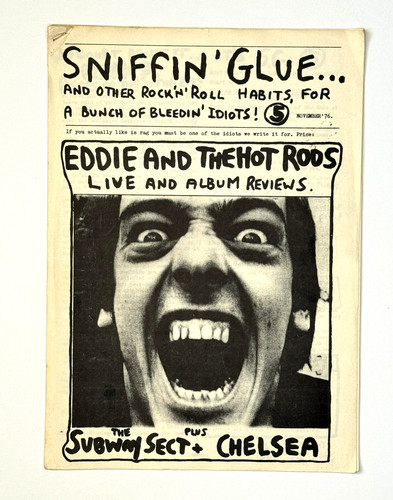 SNIFFIN' GLUE...
AND OTHER ROCK'N'ROLL HABITS, FOR
A BUNCH OF BLEEDIN' IDIOTS! 5 NOVEMBER'76.
If you actually like is rag you must be one of the idiots we write it for. Price:
EDDIE AND THE HOT RODS
LIVE AND ALBUM REVIEWS.
THE SUBWAY SECT + PLUS CHELSEA